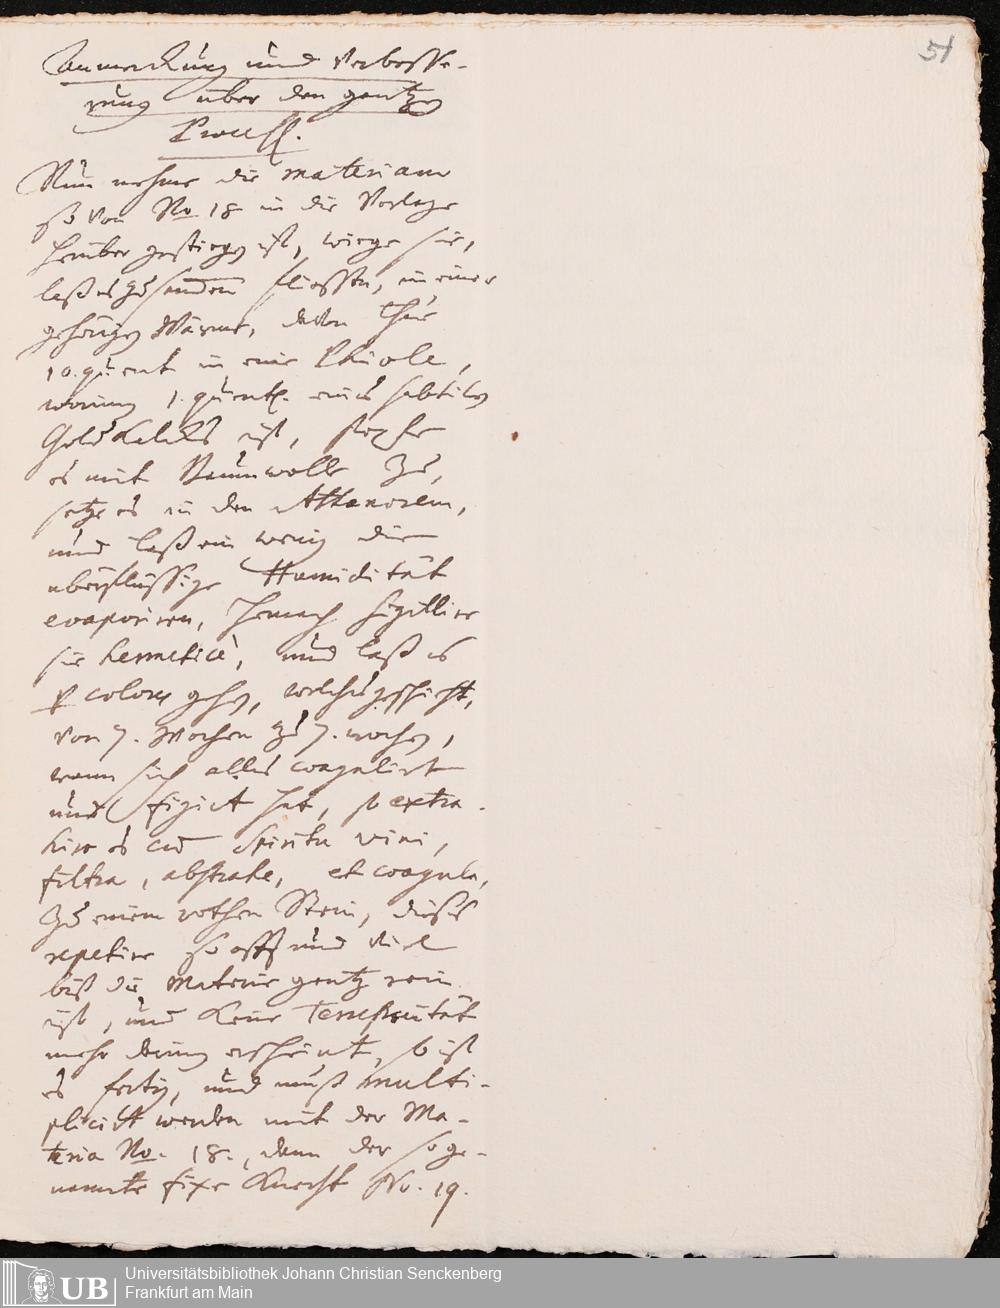 51
Anmerckung und Verbesse-
rung über den gantzen
Process.
Nun nehme die materiam
so von No 18 in die Vorlage
herüber gestiegen ist, wiege sie,
laß es zusammen fliessen, in einer
gehörigen Wärme, davon thue
10. quent in eine Phiole,
worinn 1. quentl. eines subtilen
Goldkalcks ist, stopfe
es mit Baumwolle zu,
setze es in den Athanorem,
und laß ein wenig die
überflüssige Humidität
evaporiren, hernach sigillire
sie hermeticè, und laß es
p colores gehen, welches geschieht,
von 7. Wochen zu 7. wochen,
wann sich alles coagulirt
und figirt hat, so extra-
hire es cum Spiritu vini,
filtra, abstrahe, et coagula,
zu einem rothen Stein, dieses
repetire so offt und viel
biß die Materie gantz rein
ist, und keine Terrestrität
mehr darinn erscheint, so ist
es fertig, und muß multi-
plicirt werden mit der Ma-
teria No. 18., dann der soge-
nannte fixe Knecht No. 19.
UB
Universitätsbibliothek Johann Christian Senckenberg
Frankfurt am Main